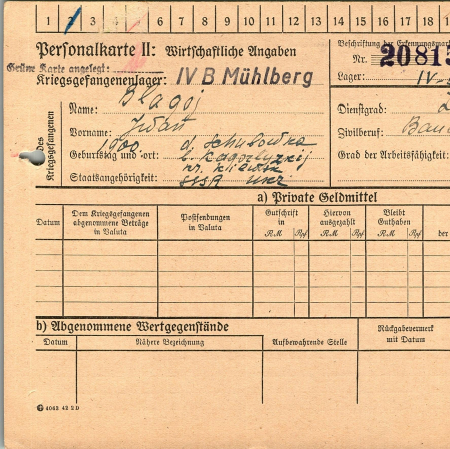 1 2 3 4 5 6 7 8 9 10 11 12 13 14 15 16 17 18 1
Personalkarte II: Wirtschaftliche Angaben
Beschriftung der Erkennungsmark
Grüne Karte angelegt:
Nr. 20815
Kriegsgefangenenlager: IV B Mühlberg
Lager: IV-
des Kriegsgefangenen
Name: Blagoj
Dienstgrad:
Vorname: Iwan
Zivilberuf: Bau
Geburtstag und -ort: 1900 d. Schulowka
Grad der Arbeitsfähigkeit:
Staatsangehörigkeit: SSSR Ukr
a) Private Geldmittel
Datum
Dem Kriegsgefangenen abgenommene Beträge in Valuta
Postsendungen in Valuta
Gutschrift in RM Rpf
Hiervon ausgezahlt RM Rpf
Bleibt Guthaben RM Rpf
der
b) Abgenommene Wertgegenstände
Rückgabevermerk mit Datum
Datum
Nähere Bezeichnung
Aufbewahrende Stelle
4062 42 2 D